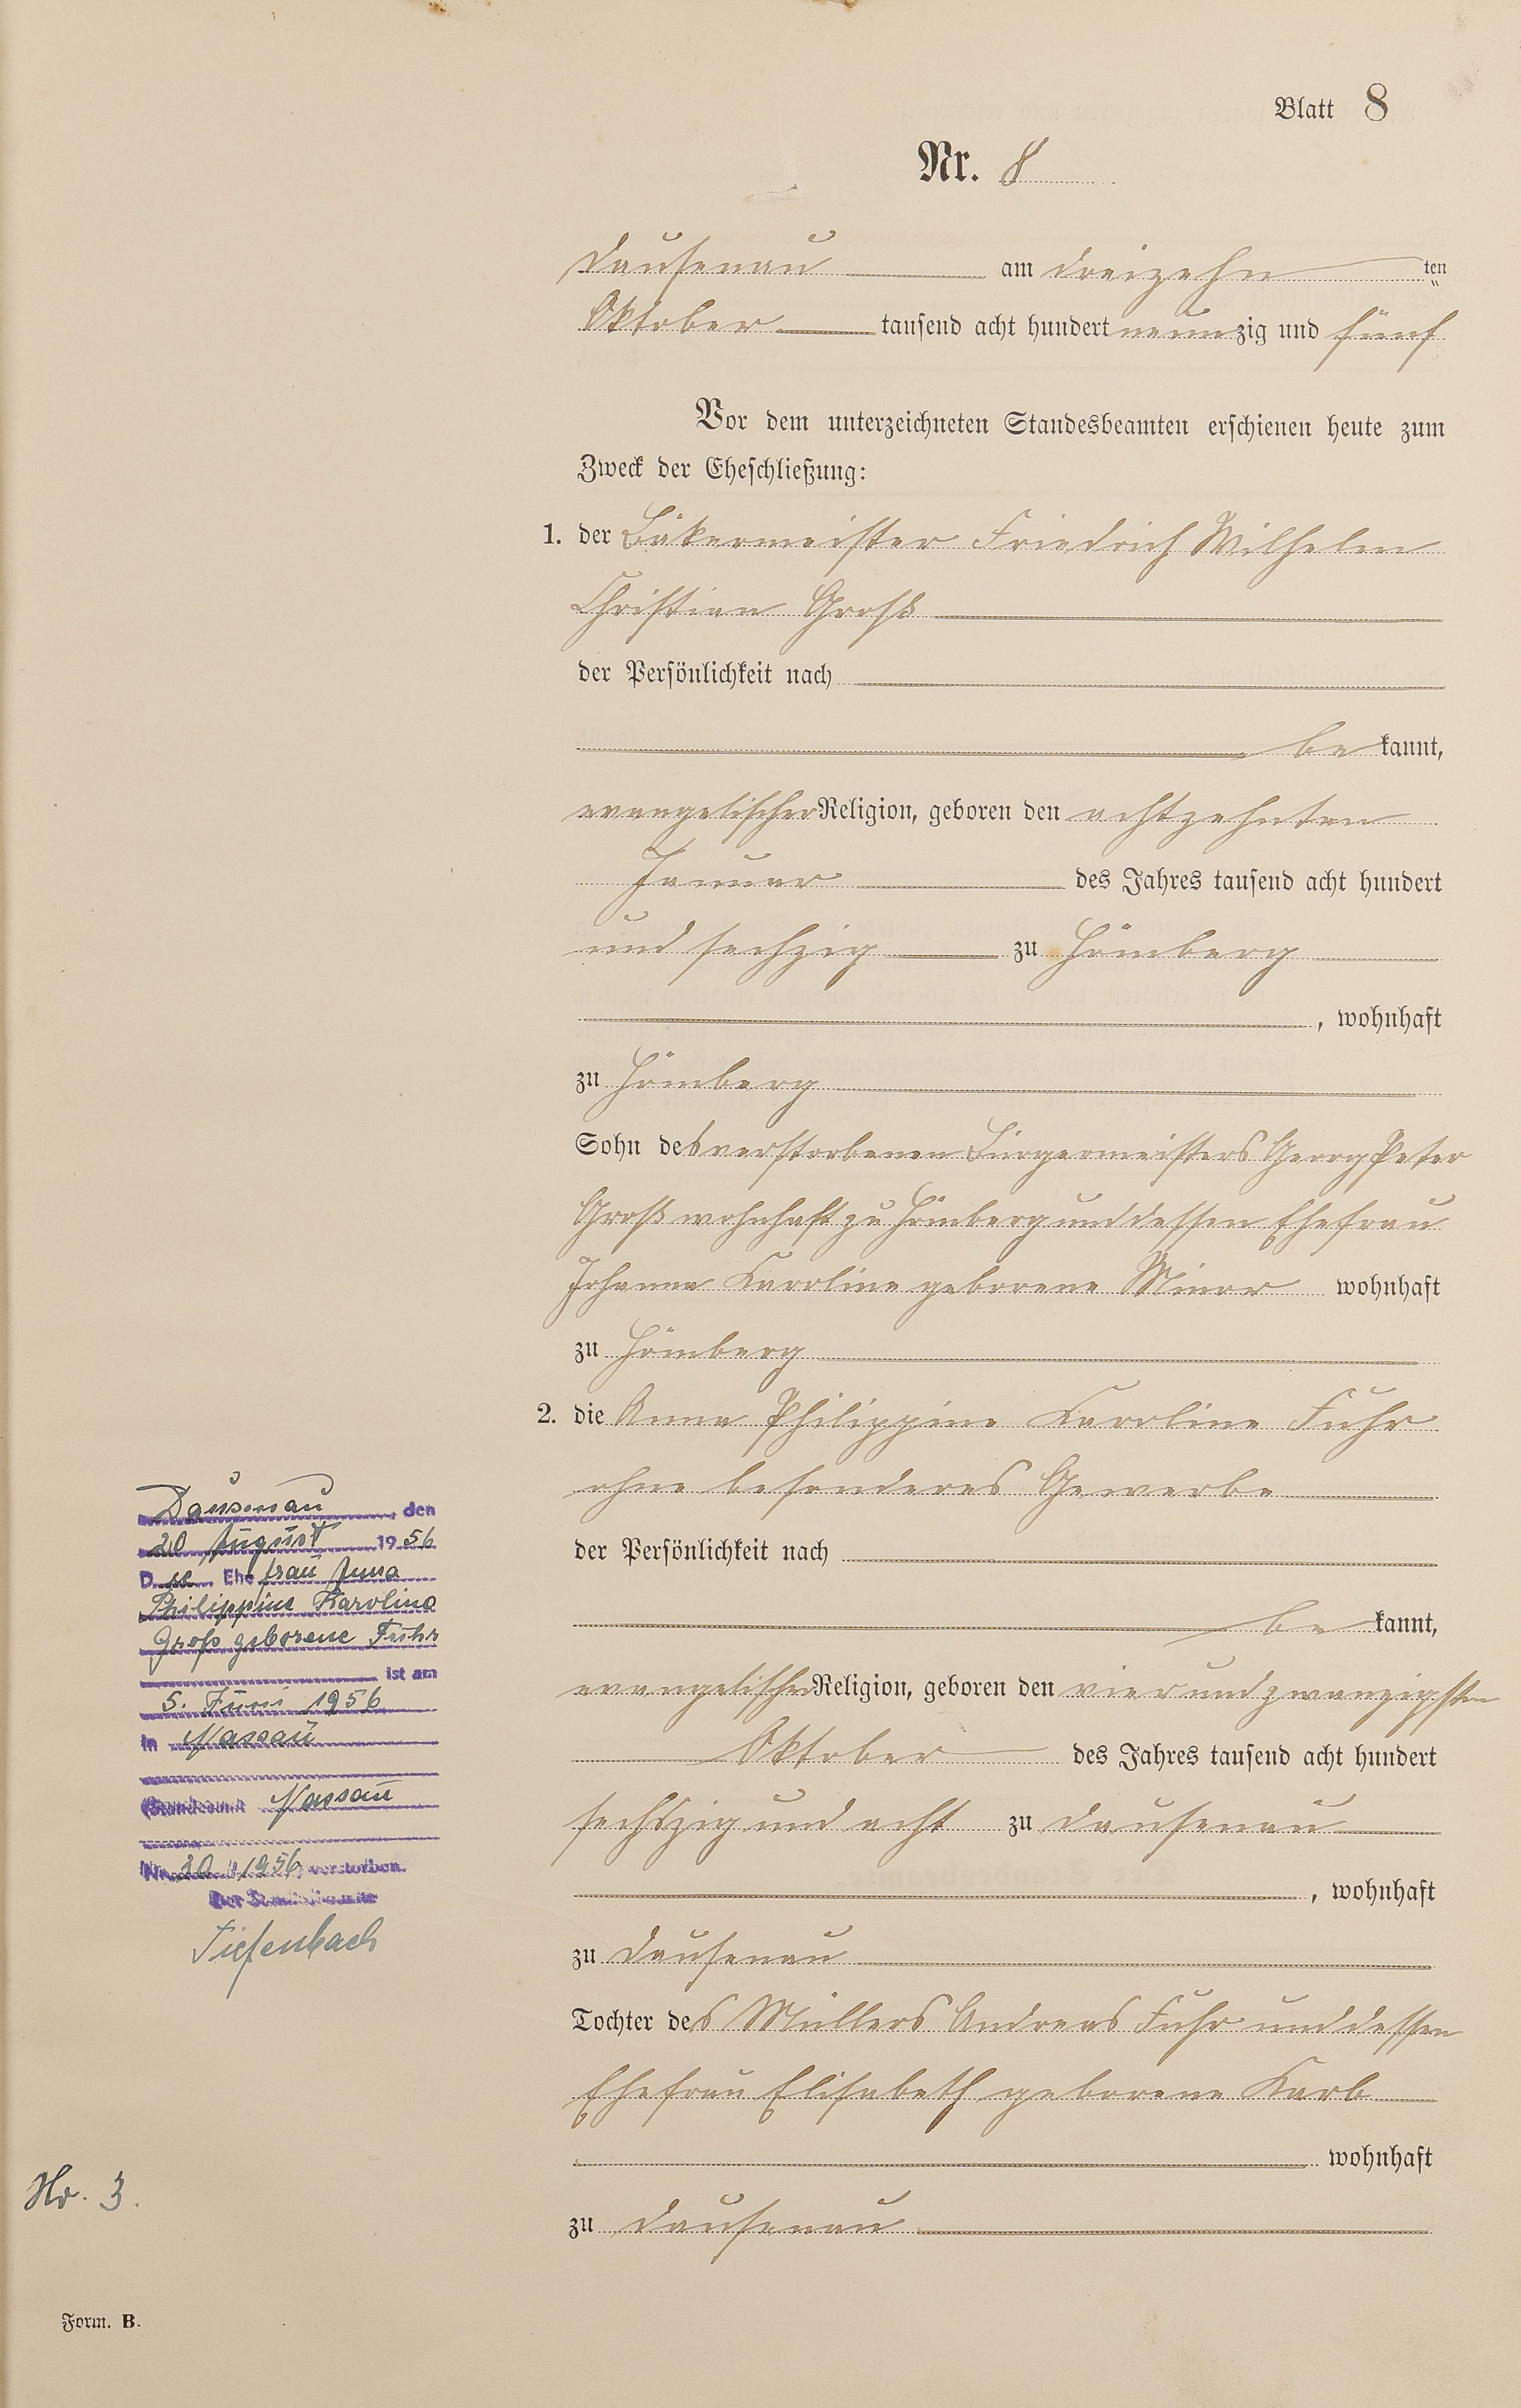 Blatt 8
Nr. 8
Dausenau am dreizehn ten
Oktober tausend acht hundert neunzig und fünf
Vor dem unterzeichneten Standesbeamten erschienen heute zum
Zweck der Eheschließung:
1. der Bäkermeister Friedrich Wilhelm
Christian Groß
der Persönlichkeit nach
be kannt,
evangelischer Religion, geboren den achtzehnten
Januar des Jahres tausend acht hundert
und sechzig zu Hömberg
, wohnhaft
zu Hömberg
Sohn des verstorbenen Bürgermeisters Georg Peter
Groß wohnhaft zu Hömberg und dessen Ehefrau
Johanna Karoline geborene Minor wohnhaft
zu Hömberg
2. die Anna Philippine Karoline Fuhr
ohne besonderes Gewerbe
der Persönlichkeit nach
be kannt,
evangelischer Religion, geboren den vierundzwanzigsten
Oktober des Jahres tausend acht hundert
sechszig und acht zu Dausenau
, wohnhaft
zu Dausenau
Tochter des Müllers Andreas Fuhr und dessen
Ehefrau Elisabeth geborene Karb
wohnhaft
zu Dausenau
Dausenau, den
20 August 1956
Die Ehefrau Anna
Philippine Karoline
Groß geborene Fuhr
ist am
5. Juni 1956
in Nassau
(Standesamt Nassau
Nr. 20/1956) verstorben.
Der Standesbeamte
Tiefenbach
Nr. 3.
Form. B.